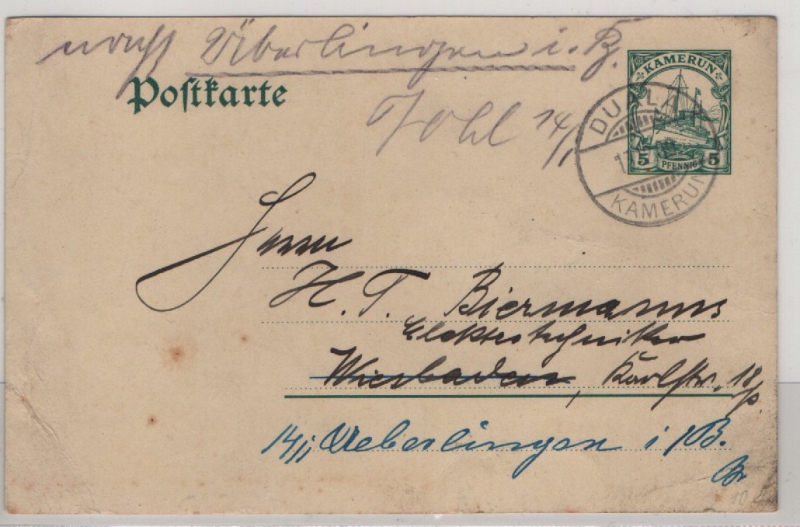 nach Überlingen i. B.
Postkarte
14/1
KAMERUN
5 PFENNIG 5
DUALA
KAMERUN
Herrn
H. T. Biermanns
Elektrotechniker
Wiesbaden, Karlstr. 18/p.
14/1 Ueberlingen i/B.
Br